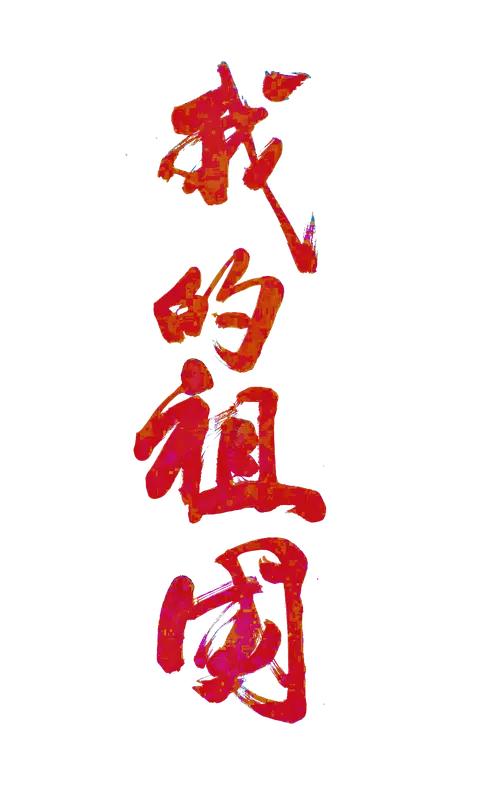 我的祖国